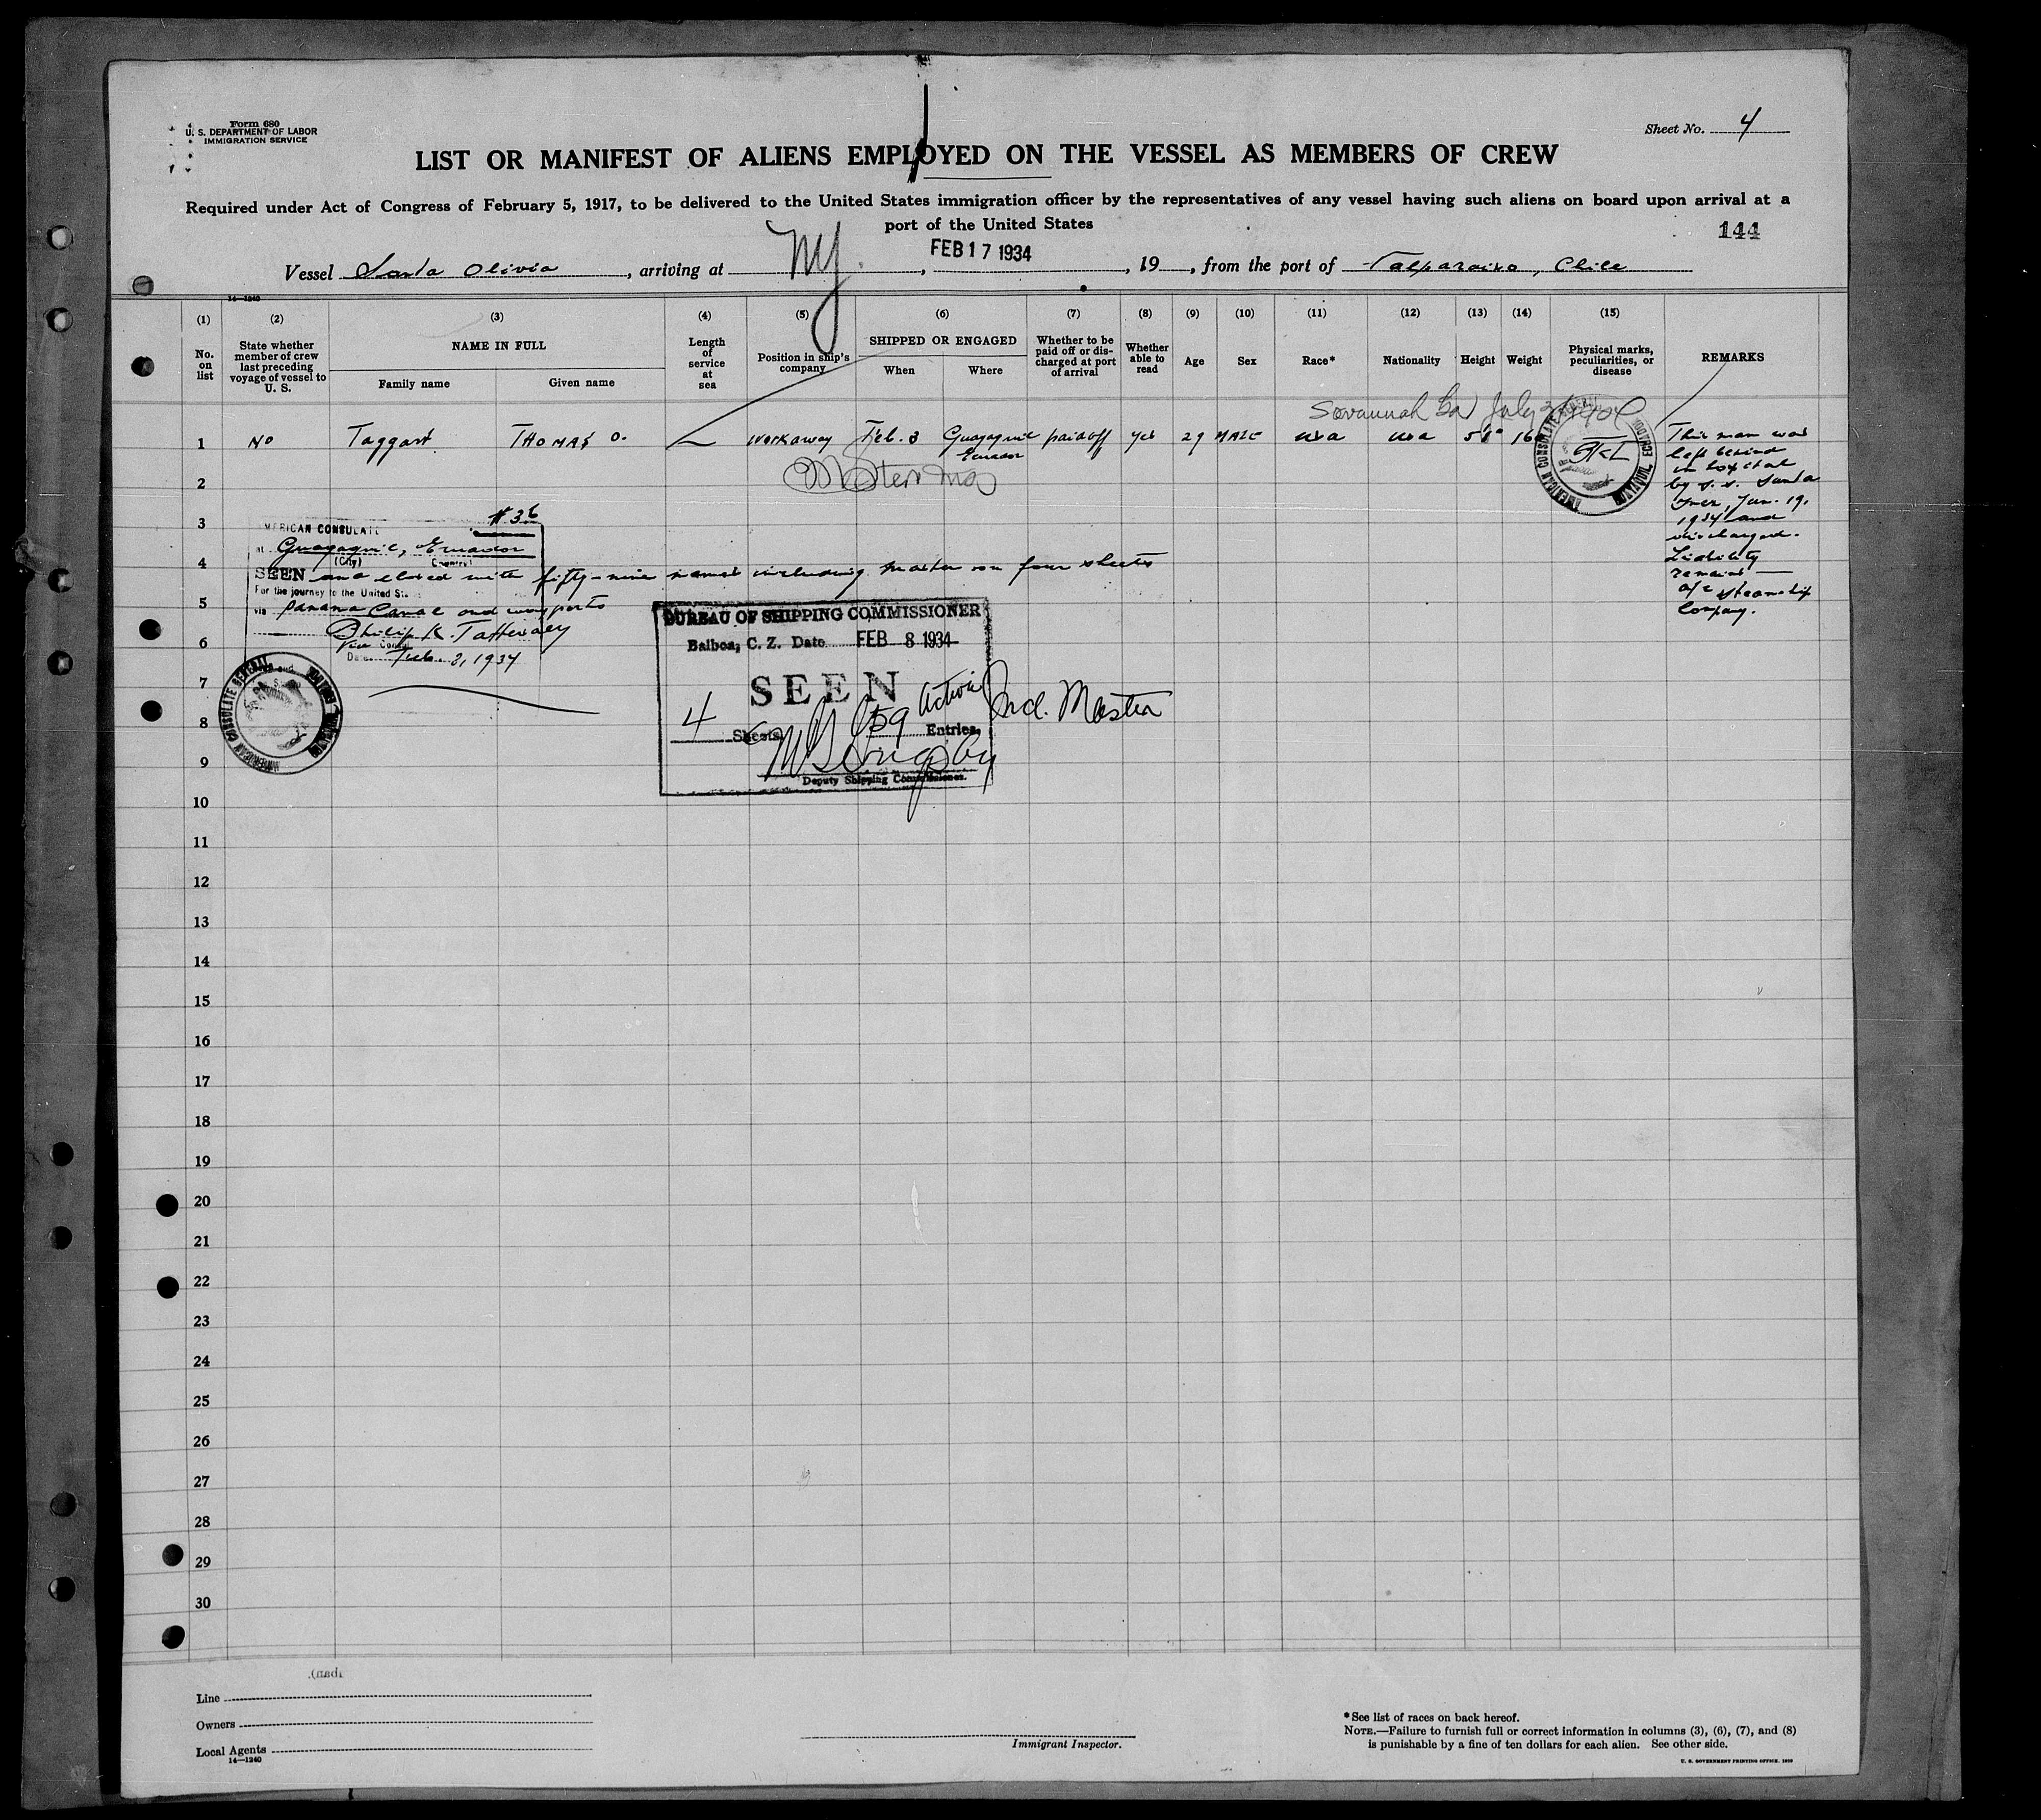 Form 680
U. S. DEPARTMENT OF LABOR
IMMIGRATION SERVICE
Sheet No. 4
LIST OR MANIFEST OF ALIENS EMPLOYED ON THE VESSEL AS MEMBERS OF CREW
Required under Act of Congress of February 5, 1917, to be delivered to the United States immigration officer by the representatives of any vessel having such aliens on board upon arrival at a
port of the United States
144
Vessel Santa Olivia, arriving at NY., FEB 17 1934, 19, from the port of Valparaiso, Chile
14—1240
(1) (2) (3) (4) (5) (6) (7) (8) (9) (10) (11) (12) (13) (14) (15)
No. on list
State whether member of crew last preceding voyage of vessel to U. S.
NAME IN FULL
Family name
Given name
Length of service at sea
Position in ship's company
SHIPPED OR ENGAGED
When
Where
Whether to be paid off or discharged at port of arrival
Whether able to read
Age
Sex
Race*
Nationality
Height
Weight
Physical marks, peculiarities, or disease
REMARKS
Savannah Ga July
1 No Taggart THOMAS O. workaway Feb. 3 Guayaquil Ecuador paid off yes 29 MALE usa usa
This man was
left behind
in hospital
by s.s. Santa
Inez, Jan. 19,
1934 and
discharged.
Liability
remains
a/c steamship
Company.
AMERICAN CONSULATE ECUADOR
2
3
#36
AMERICAN CONSULATE
at Guayaquil, Ecuador
(City) (Country)
4
SEEN and closed with fifty-nine names including master on four sheets
For the journey to the United St
5
via Panama Canal and way ports
Philip K. Tattersall
Vice Consul
6
Date Feb. 3, 1934
AMERICAN CONSULATE GENERAL
BUREAU OF SHIPPING COMMISSIONER
Balboa, C. Z. Date FEB 8 1934
SEEN
4 Sheets 59 Entries, Incl. Master
Deputy Shipping Commissioner.
7
8
9
10
11
12
13
14
15
16
17
18
19
20
21
22
23
24
25
26
27
28
29
30
Line
Owners
Local Agents
14—1240
Immigrant Inspector.
*See list of races on back hereof.
NOTE.—Failure to furnish full or correct information in columns (3), (6), (7), and (8)
is punishable by a fine of ten dollars for each alien. See other side.
U. S. GOVERNMENT PRINTING OFFICE